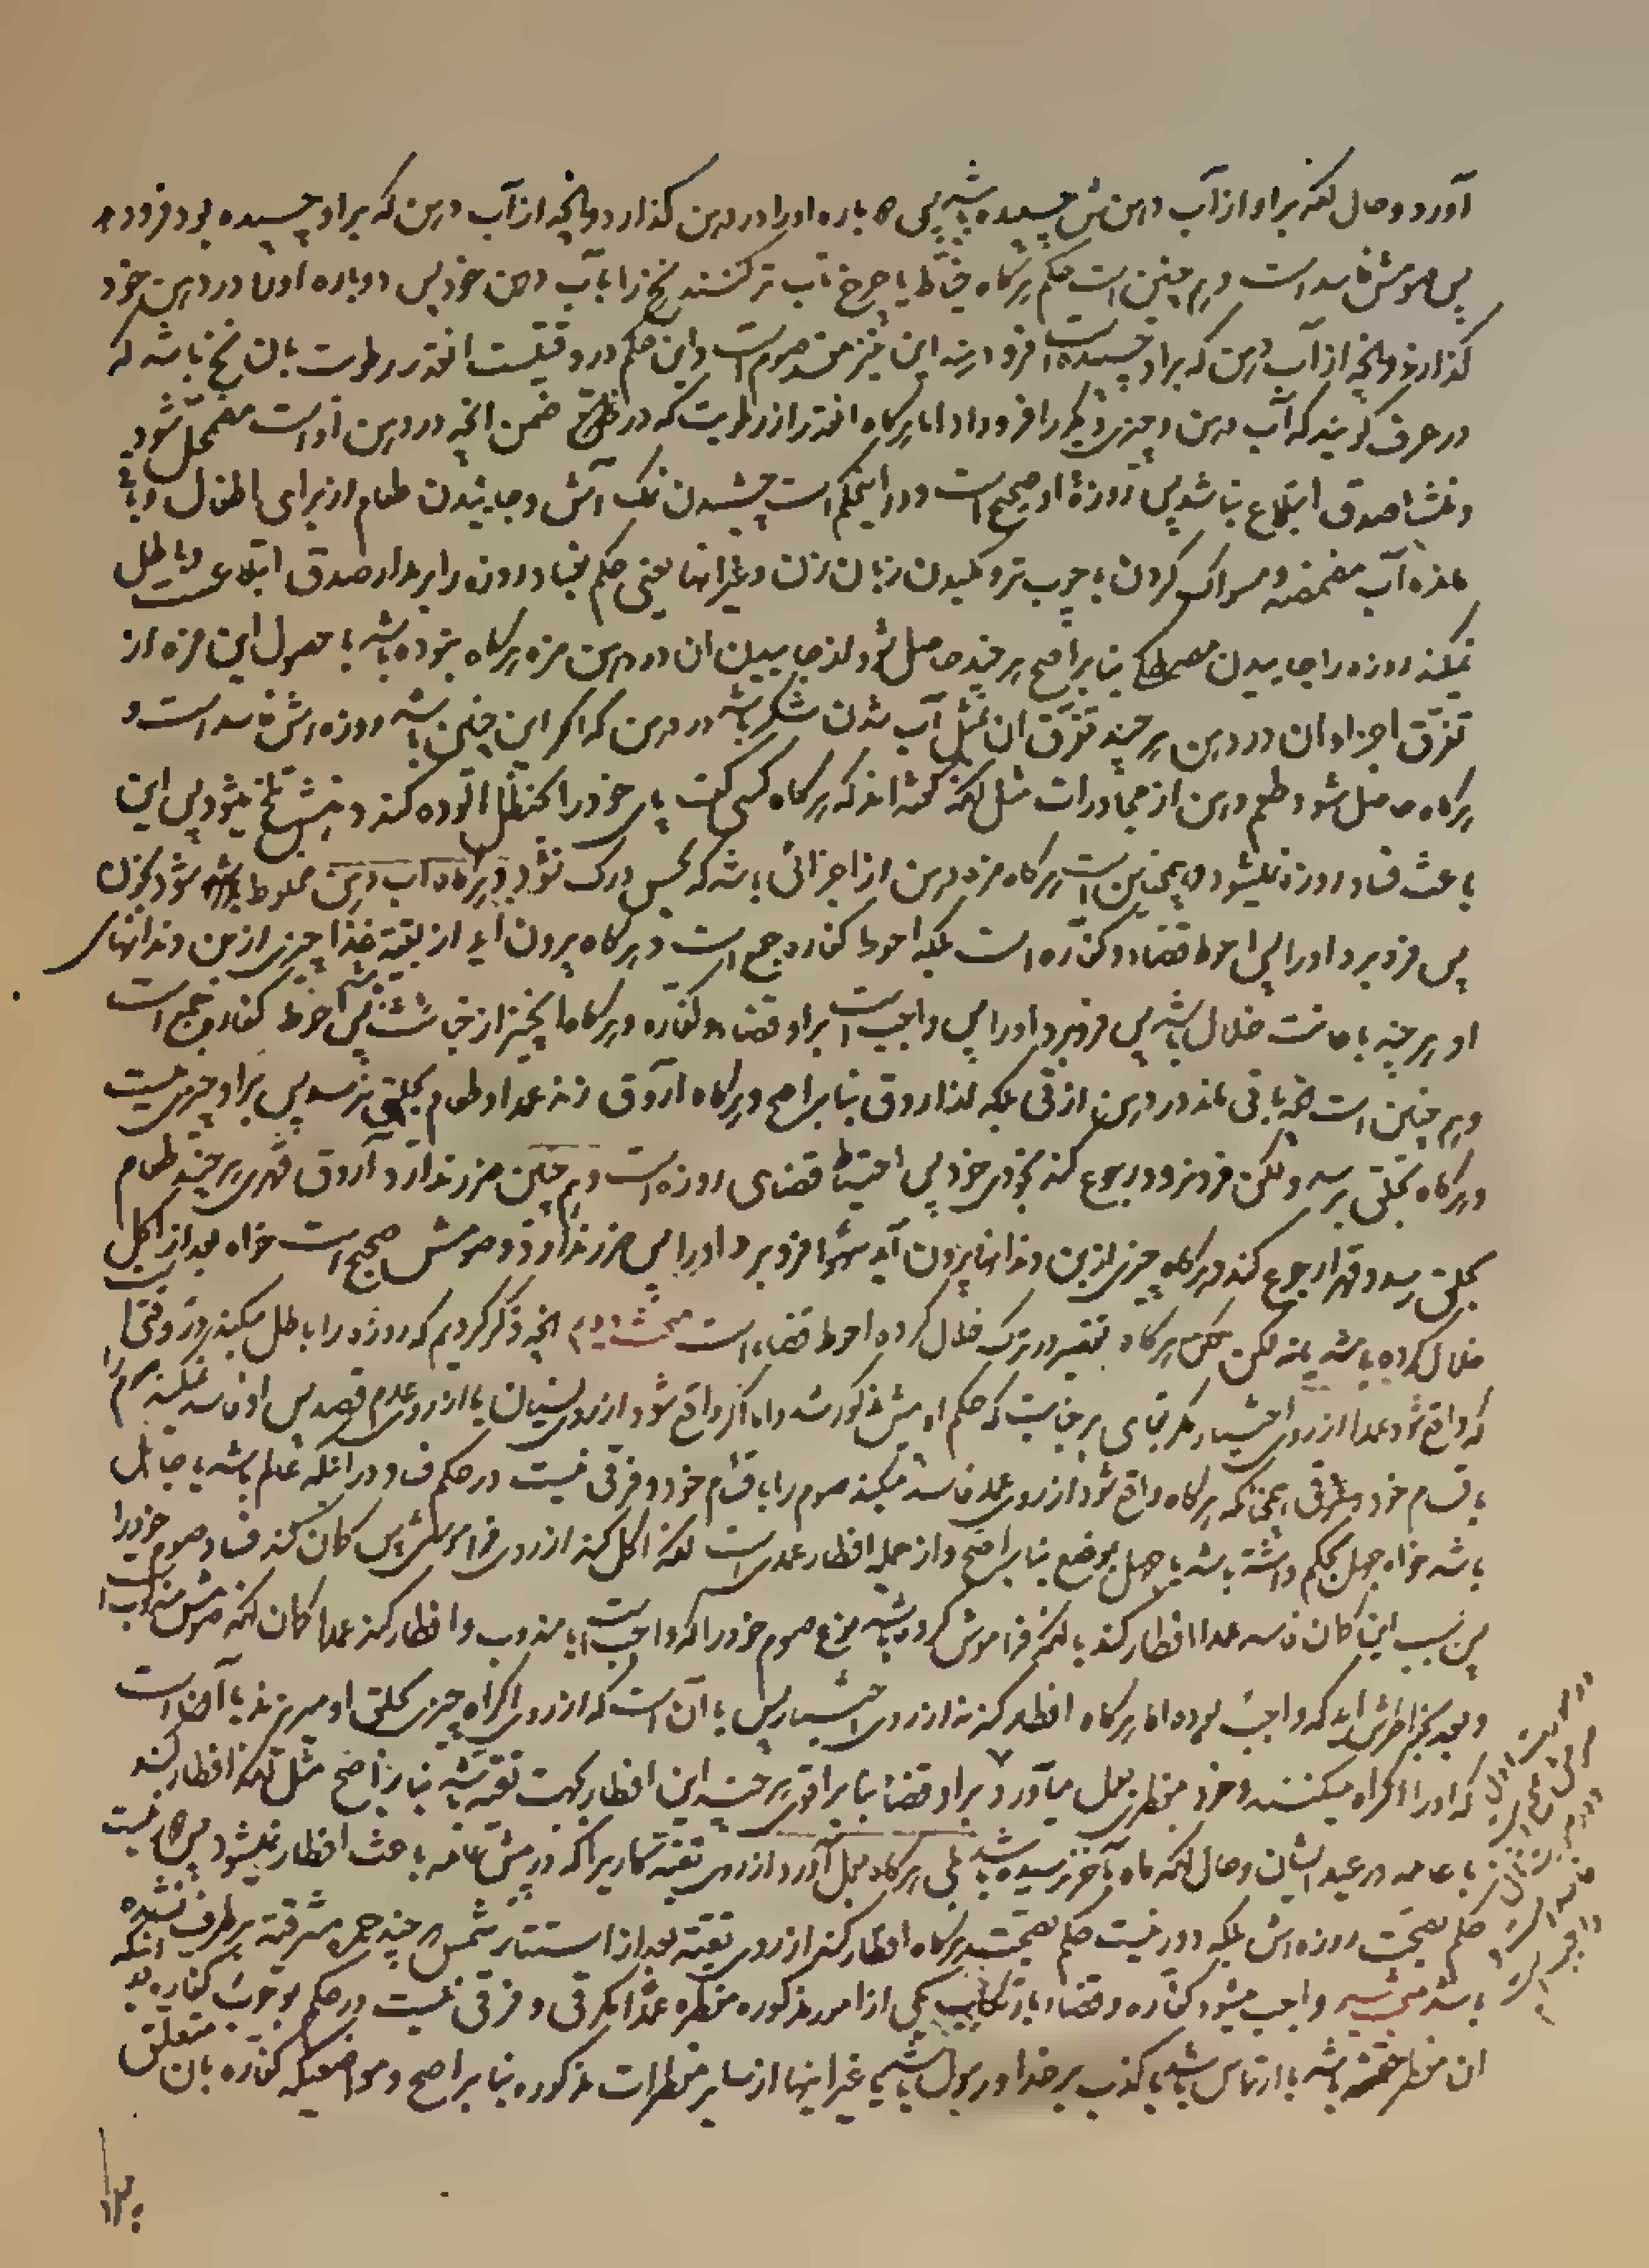 آورد و حال آنکه بر او از آب دهنش چسبیده باشد پس دوباره او را در دهن گذارد و آنچه از آب دهن که بر او چسبیده بود فرو برد
پس صومش فاسد است و همچنین است حکم هرگاه خیاط یا چرخ تاب تر کنند نخ را بآب دهن خود پس دوباره او را در دهن خود
گذارند و آنچه از آب دهن که بر او چسبیده است فرو برند این نیز مفسد صوم است و این حکم در وقتیست آنقدر رطوبت بان نخ باشد که
در عرف گویند که آب دهن و چیزی دیگر را فرو داد اما هرگاه آنقدر از رطوبت که در ضمن آنچه در دهن او است مضمحل شود
و منشاء صدق ابتلاع نباشد پس روزه او صحیح است و در اینحکم است چشیدن نمک آش و جائیدن طعام از برای اطفال و باقی
مانده آب مضمضه و مسواک کردن با چوب تر و مکیدن زبان زن و غیر اینها یعنی حکم بفساد روزه را بر مدار صدق ابتلاعست و باطل
نمیکند روزه را جاییدن مصطکی بنا بر اصح هر چند حاصل شود از جاییدن ان در دهن مزه هرگاه نبوده باشد با حصول این مزه از
تفرق اجزاء ان در دهن هر چند تفرق ان بمثل آب شدن شکر باشد در دهن که اگر این چنین باشد روزه اش فاسد است و
هرگاه حاصل شود طعم دهن از مجاورات مثل آنکه گفته اند که هرگاه کسی کف پای خود را بحنظل آلوده کند دهنش تلخ میشود پس این
باعث فساد روزه نمیشود و همچنین است هرگاه مزه دهن از اجزائی باشد که بحس درک نشود و هرگاه آب دهن مخلوط شود بخون
پس فرو برد او را پس احوط قضاء و کفاره است بلکه احوط کفاره جمع است و هرگاه بیرون آید از بقیه غذا چیزی از بن دندانهای
او هر چند باعانت خلال باشد پس فرو برد او را پس واجب است بر او قضاء و کفاره و هرگاه آنچیز از خبائث باشد پس احوط کفاره جمع است
و همچنین است آنچه باقی ماند در دهن از قی بلکه از آروق بنا بر اصح و هرگاه آروق زند عمدا و طعام بحلق نرسد پس بر او چیزی نیست
و هرگاه بحلق برسد و لکن فرو نرود و رجوع کند بخودی خود پس احتیاط قضای روزه است و همچنین ضرر ندارد آروق قهری هر چند طعام
بحلق رسد و قهرا رجوع کند و هرگاه چیزی از بن دندانها بیرون آید سهوا فرو برد او را پس ضرر ندارد و صومش صحیح است خواه بعد از اکل
خلال کرده باشد یا نه لکن هرگاه تقصیر در ترک خلال کرده احوط قضاء است مبحث دویم آنچه ذکر کردیم که روزه را باطل میکند در وقتی است
که واقع شود عمدا از روی اختیار مگر بقای بر جنابت که حکم او پیش مذکور شد و اما اگر واقع شود از روی نسیان یا از روی عدم قصد پس او فاسد نمیکند صوم را
باقسام خود و فرقی بجز آنکه هرگاه واقع شود از روی عمد فاسد میکند صوم را باقسام خود و فرقی نیست در حکم فساد در آنکه عالم باشد یا جاهل
باشد خواه جهل بحکم داشته باشد یا جهل بموضع بنا بر اصح و از جمله افطار عمدی است آنکه اکل کند از روی فراموشی پس گمان کند فساد صوم خود را
پس بسبب این گمان فاسد عمدا افطار کند یا آنکه فراموش کرده باشد نوع صوم خود را که واجب است یا مندوب و افطار کند عمدا بگمان آنکه صومش مندوب است
و بعد بخاطرش آید که واجب بوده اما هرگاه افطار کند نه از روی اختیار پس یا آن است که از روی اکراه چیزی بحلق او میریزند یا آن است
که او را اکراه میکنند و خود مفطر بعمل میآورد و بر او قضاء بنا بر اقوی هر چند این افطار بجهت تقیه باشد بنا بر اصح مثل آنکه افطار کند
با عامه در عید ایشان و حال آنکه ماه بآخر نرسیده باشد بلی هرگاه بعمل آورد از روی تقیه کاریرا که در پیش عامه باعث افطار نمیشود پس بعید نیست
حکم بصحت روزه اش بلکه دور نیست حکم بصحت هرگاه افطار کند از روی تقیه بعد از استتار شمس هر چند حمره مشرقیه بر طرف نشده
باشد مبحث سیم واجب میشود کفاره و قضاء بارتکاب یکی از امور مذکوره مفطره عمدا مگر قی و فرقی نیست در حکم بوجوب کفاره بو آنکه
ان مفطر حقنه باشد یا ارتماس باشد یا کذب بر خدا و رسول باشد یا غیر اینها از سایر مفطرات مذکوره بنا بر اصح و مواضعیکه کفاره بان متعلق